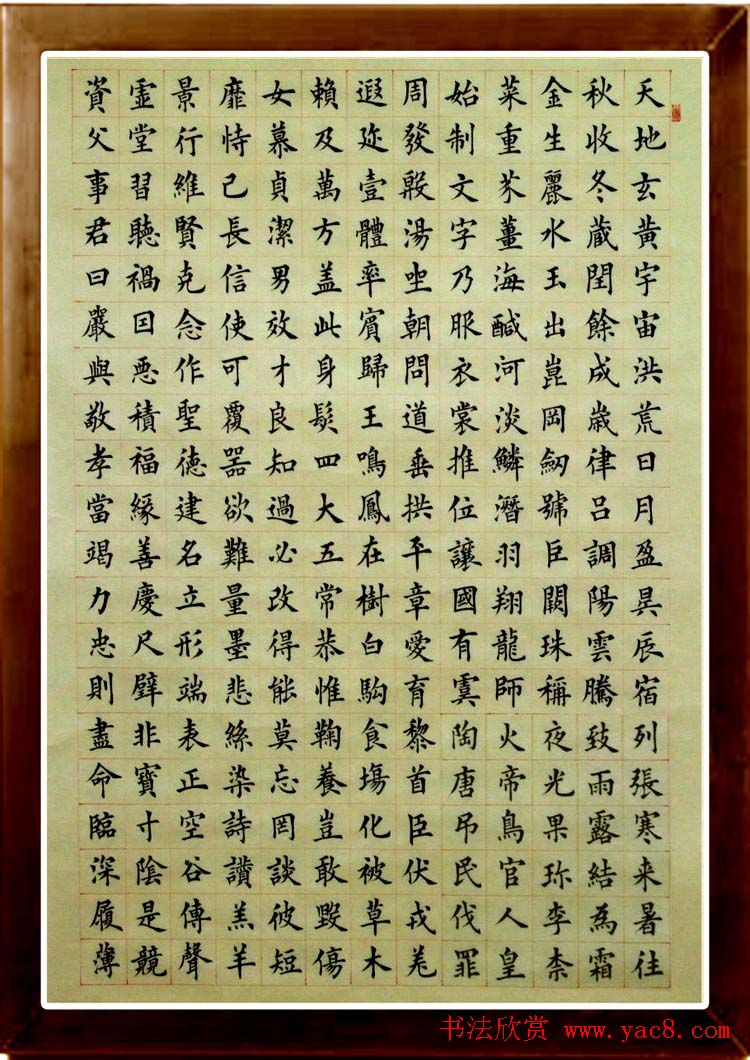 天地玄黄宇宙洪荒日月盈昃辰宿列張寒来暑往
秋收冬蔵閏餘成歳律吕調陽雲騰致雨露結為霜
金生麗水玉出崑岡劒號巨闕珠稱夜光果珎李柰
菜重芥薑海醎河淡鱗潛羽翔龍師火帝鳥官人皇
始制文字乃服衣裳推位讓國有虞陶唐吊民伐罪
周發殷湯坐朝問道垂拱平章愛育黎首臣伏戎羌
遐迩壹體率賓歸王鳴鳳在樹白駒食場化被草木
賴及萬方盖此身髮四大五常恭惟鞠養豈敢毀傷
女慕貞潔男效才良知過必改得能莫忘罔談彼短
靡恃己長信使可覆器欲難量墨悲絲染詩讚羔羊
景行維賢克念作聖德建名立形端表正空谷傳聲
虛堂習聽禍因惡積福緣善慶尺璧非寶寸陰是競
資父事君曰嚴與敬孝當竭力忠則盡命臨深履薄
书法欣赏 www.yac8.com